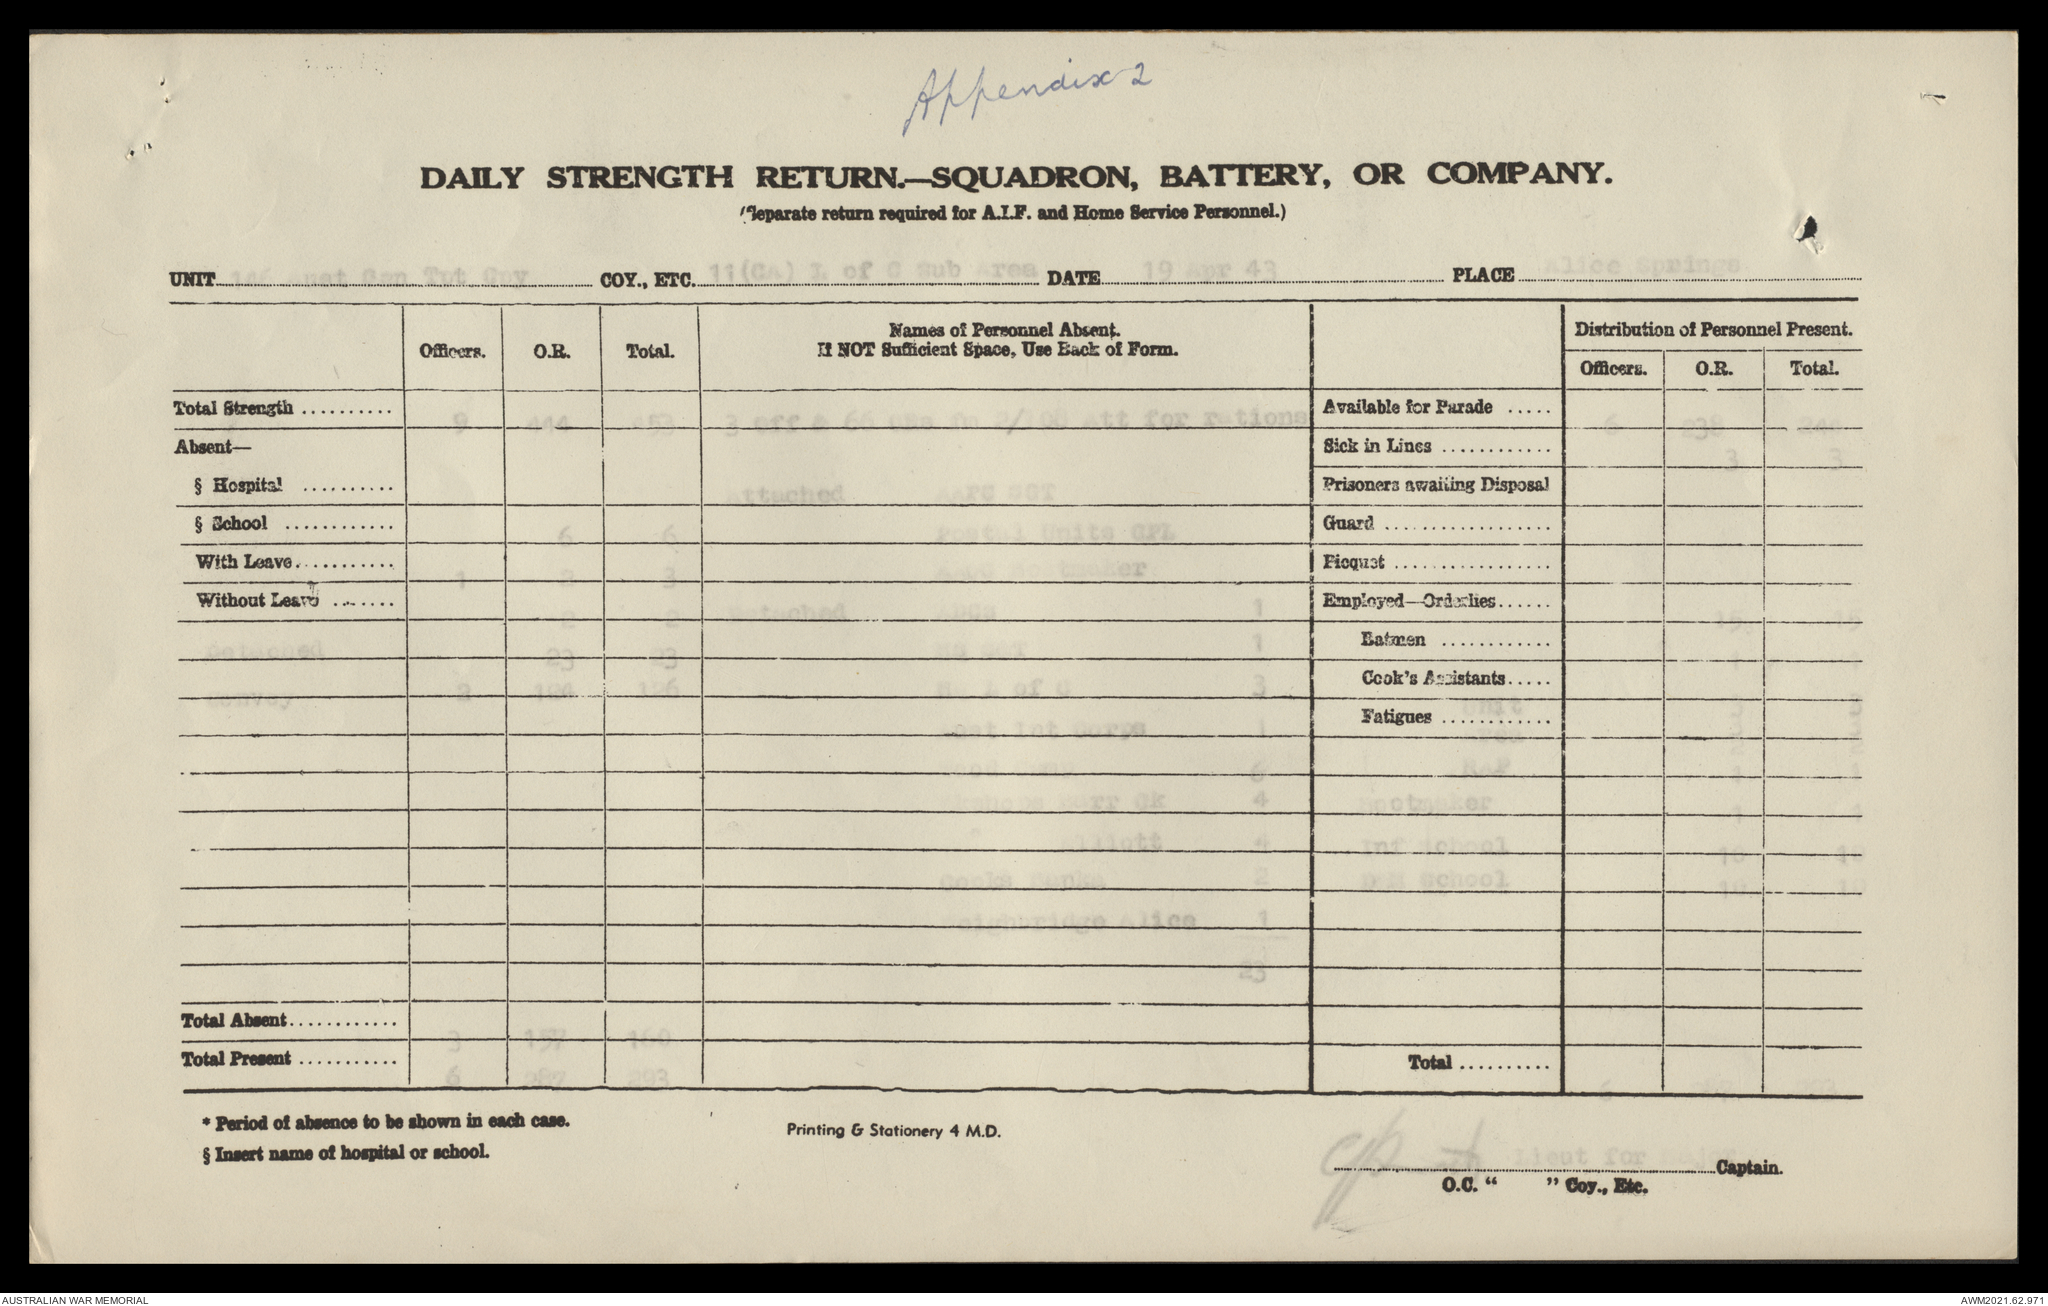 Appendix 2
DAILY STRENGTH RETURN.—SQUADRON, BATTERY, OR COMPANY.
(Separate return required for A.I.F. and Home Service Personnel.)
UNIT 146 Gen Tpt Cpy COY., ETC. 11(CA) L of C Sub Area DATE 19 Apr 43 PLACE Alice Springs
Officers. O.R. Total. Names of Personnel Absent. If NOT Sufficient Space, Use Back of Form. Distribution of Personnel Present. Officers. O.R. Total.
Total Strength .......... 9 444 453 3 Off & 66 ORs Att for rations Available for Parade ..... 6 238 244
Absent— Sick in Lines ............ 3 3
§ Hospital .......... Attached SGT Prisoners awaiting Disposal
§ School ............ 6 6 Postal Units CPL Guard ..................
With Leave........... 1 2 3 Bootmaker Picquet .................
Without Leave ....... 2 2 Detached 1 Employed—Orderlies...... 15 15
Detached 23 23 1 Batmen ............ 1 1
Convoy 2 124 126 L of C 3 Cook's Assistants..... Unit 3 3
1st Corps 1 Fatigues ............
6 RAP 1 1
4 Bootmaker 1 1
Elliott 4 Inf School 10 10
Cooks Banka 2 School 10 10
Weighbridge Alice 1
23
Total Absent............ 3 157 160
Total Present ........... 6 287 293 Total .......... 6 287 293
* Period of absence to be shown in each case.
§ Insert name of hospital or school.
Printing & Stationery 4 M.D.
Lieut for Major Captain.
O.C. “ ” Coy., Etc.
AUSTRALIAN WAR MEMORIAL
AWM2021.62.971